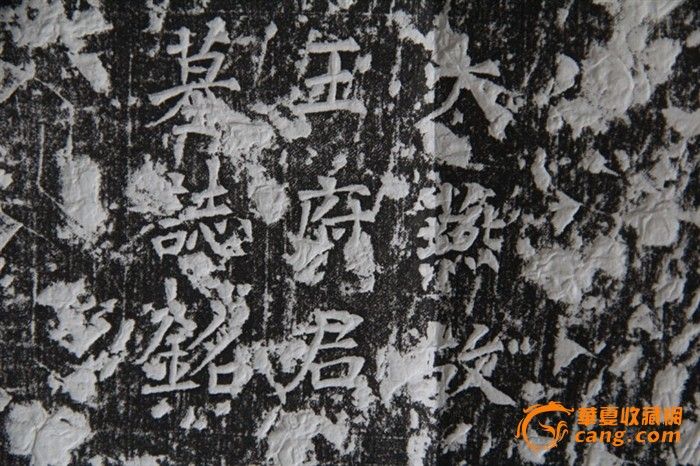 大燕故
王府君
墓誌銘
華夏收藏網
cang.com